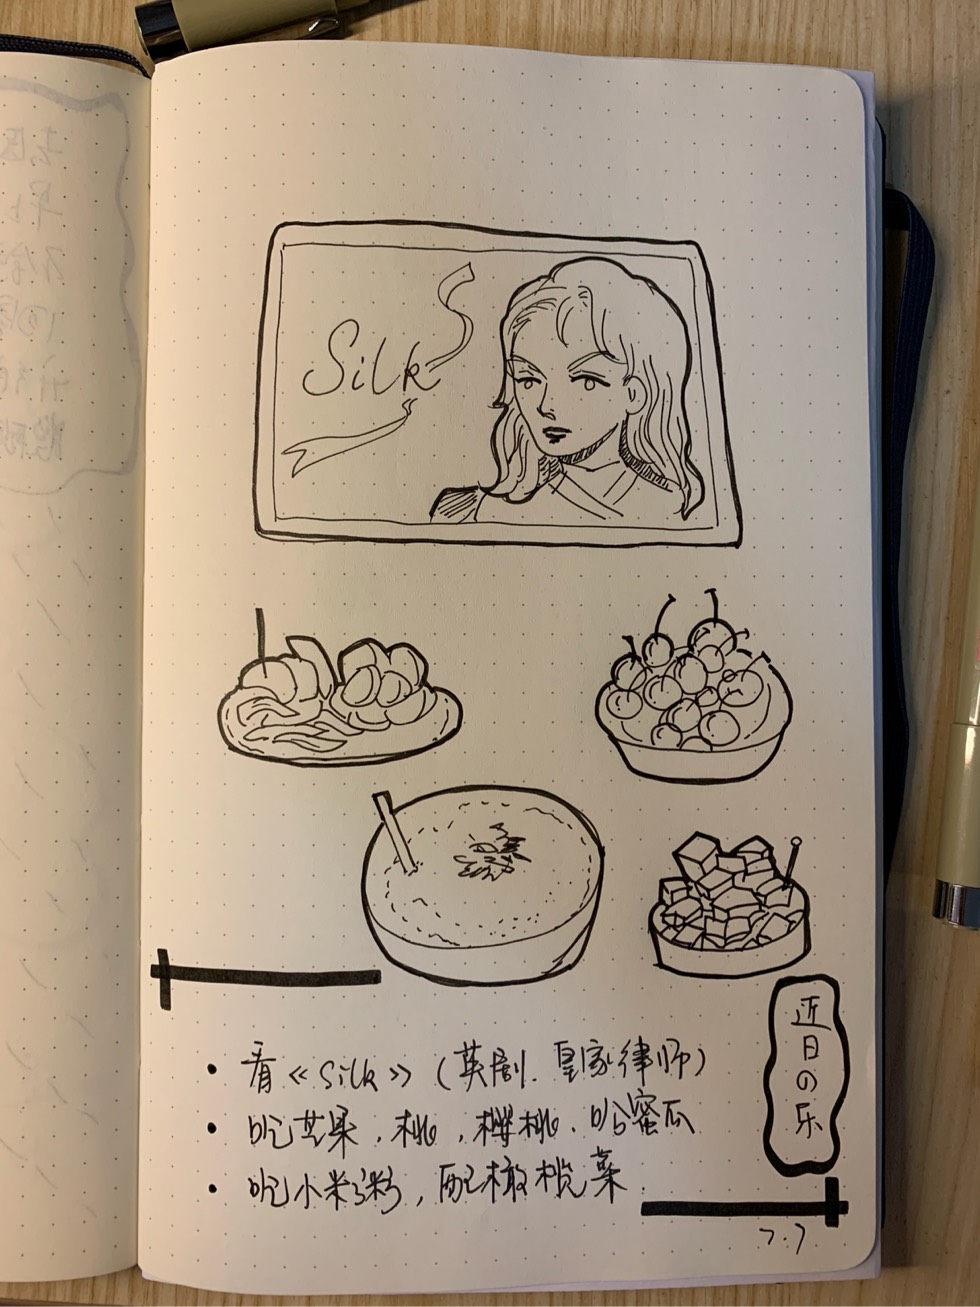 Silk
近日の乐
• 看《Silk》(英剧.皇家律师)
• 吃芒果，桃，樱桃、哈蜜瓜
• 吃小米粥，配橄榄菜
7.7